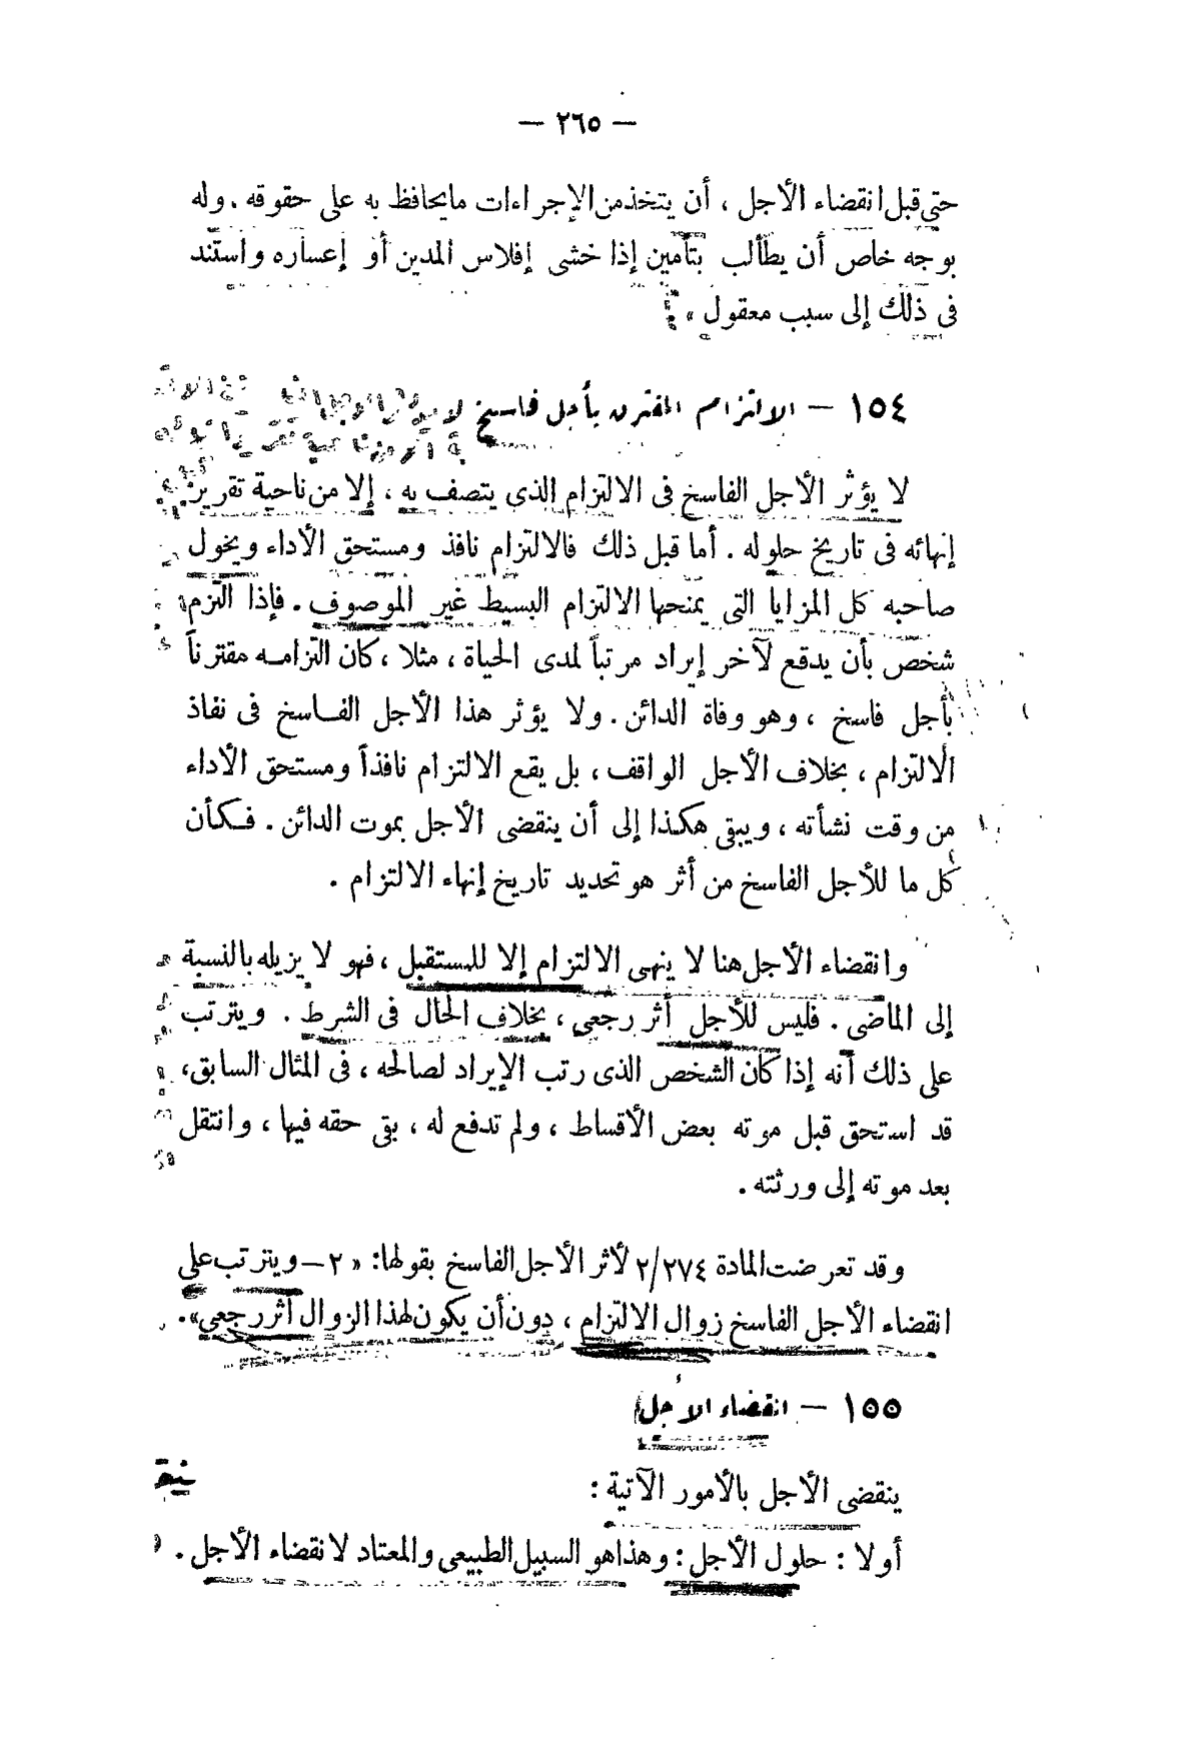 — ٢٦٥ —
حتى قبل انقضاء الأجل ، أن يتخذ من الإجراءات ما يحافظ به على حقوقه . وله
بوجه خاص أن يطالب بتأمين إذا خشى إفلاس المدين أو إعساره واستند
فى ذلك إلى سبب معقول » .
١٥٤ — الالتزام المقترن بأجل فاسخ
لا يؤثر الأجل الفاسخ فى الالتزام الذى يتصف به ، إلا من ناحية تقرير
إنهائه فى تاريخ حلوله . أما قبل ذلك فالالتزام نافذ ومستحق الأداء ويخول
صاحبه كل المزايا التى يمنحها الالتزام البسيط غير الموصوف . فإذا التزم
شخص بأن يدفع لآخر إيراد مرتباً لمدى الحياة ، مثلا ، كان التزامه مقترناً
بأجل فاسخ ، وهو وفاة الدائن . ولا يؤثر هذا الأجل الفاسخ فى نفاذ
الالتزام ، بخلاف الأجل الواقف ، بل يقع الالتزام نافذاً ومستحق الأداء
من وقت نشأته ، ويبقى هكذا إلى أن ينقضى الأجل بموت الدائن . فكأن
كل ما للأجل الفاسخ من أثر هو تحديد تاريخ إنهاء الالتزام .
وانقضاء الأجل هنا لا ينهى الالتزام إلا للمستقبل ، فهو لا يزيله بالنسبة
إلى الماضى . فليس للأجل أثر رجعى ، بخلاف الحال فى الشرط . ويترتب
على ذلك أنه إذا كان الشخص الذى رتب الإيراد لصالحه ، فى المثال السابق ،
قد استحق قبل موته بعض الأقساط ، ولم تدفع له ، بقى حقه فيها ، وانتقل
بعد موته إلى ورثته .
وقد تعرضت المادة ٢/٢٧٤ لأثر الأجل الفاسخ بقولها : « ٢ — ويترتب على
انقضاء الأجل الفاسخ زوال الالتزام ، دون أن يكون لهذا الزوال أثر رجعى » .
١٥٥ — انقضاء الأجل
ينقضى الأجل بالأمور الآتية :
أولا : حلول الأجل : وهذا هو السبيل الطبيعى والمعتاد لانقضاء الأجل .